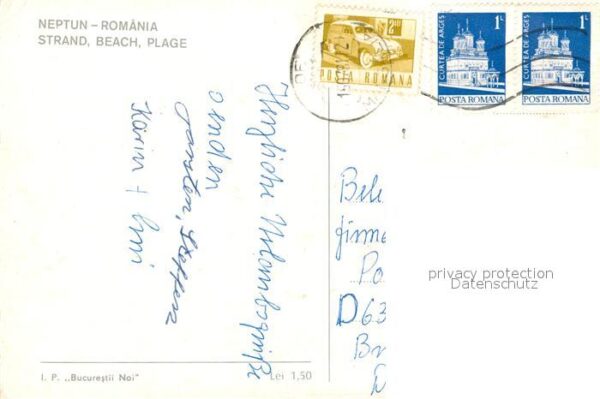 NEPTUN – ROMÂNIA
STRAND, BEACH, PLAGE
2.40
POSTA ROMANA
1L
CURTEA DE ARGES
POSTA ROMANA
1L
CURTEA DE ARGES
POSTA ROMANA
Herzliche Urlaubsgrüße
senden
Steffen
Karin +
Bele
firme
Po
D63
privacy protection
Datenschutz
I. P. „Bucureştii Noi"
Lei 1,50